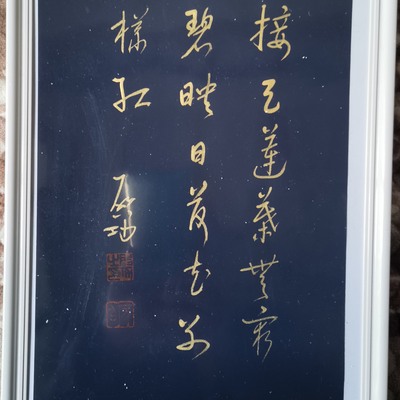 接天蓮葉無窮
碧映日荷花别
樣紅
启功